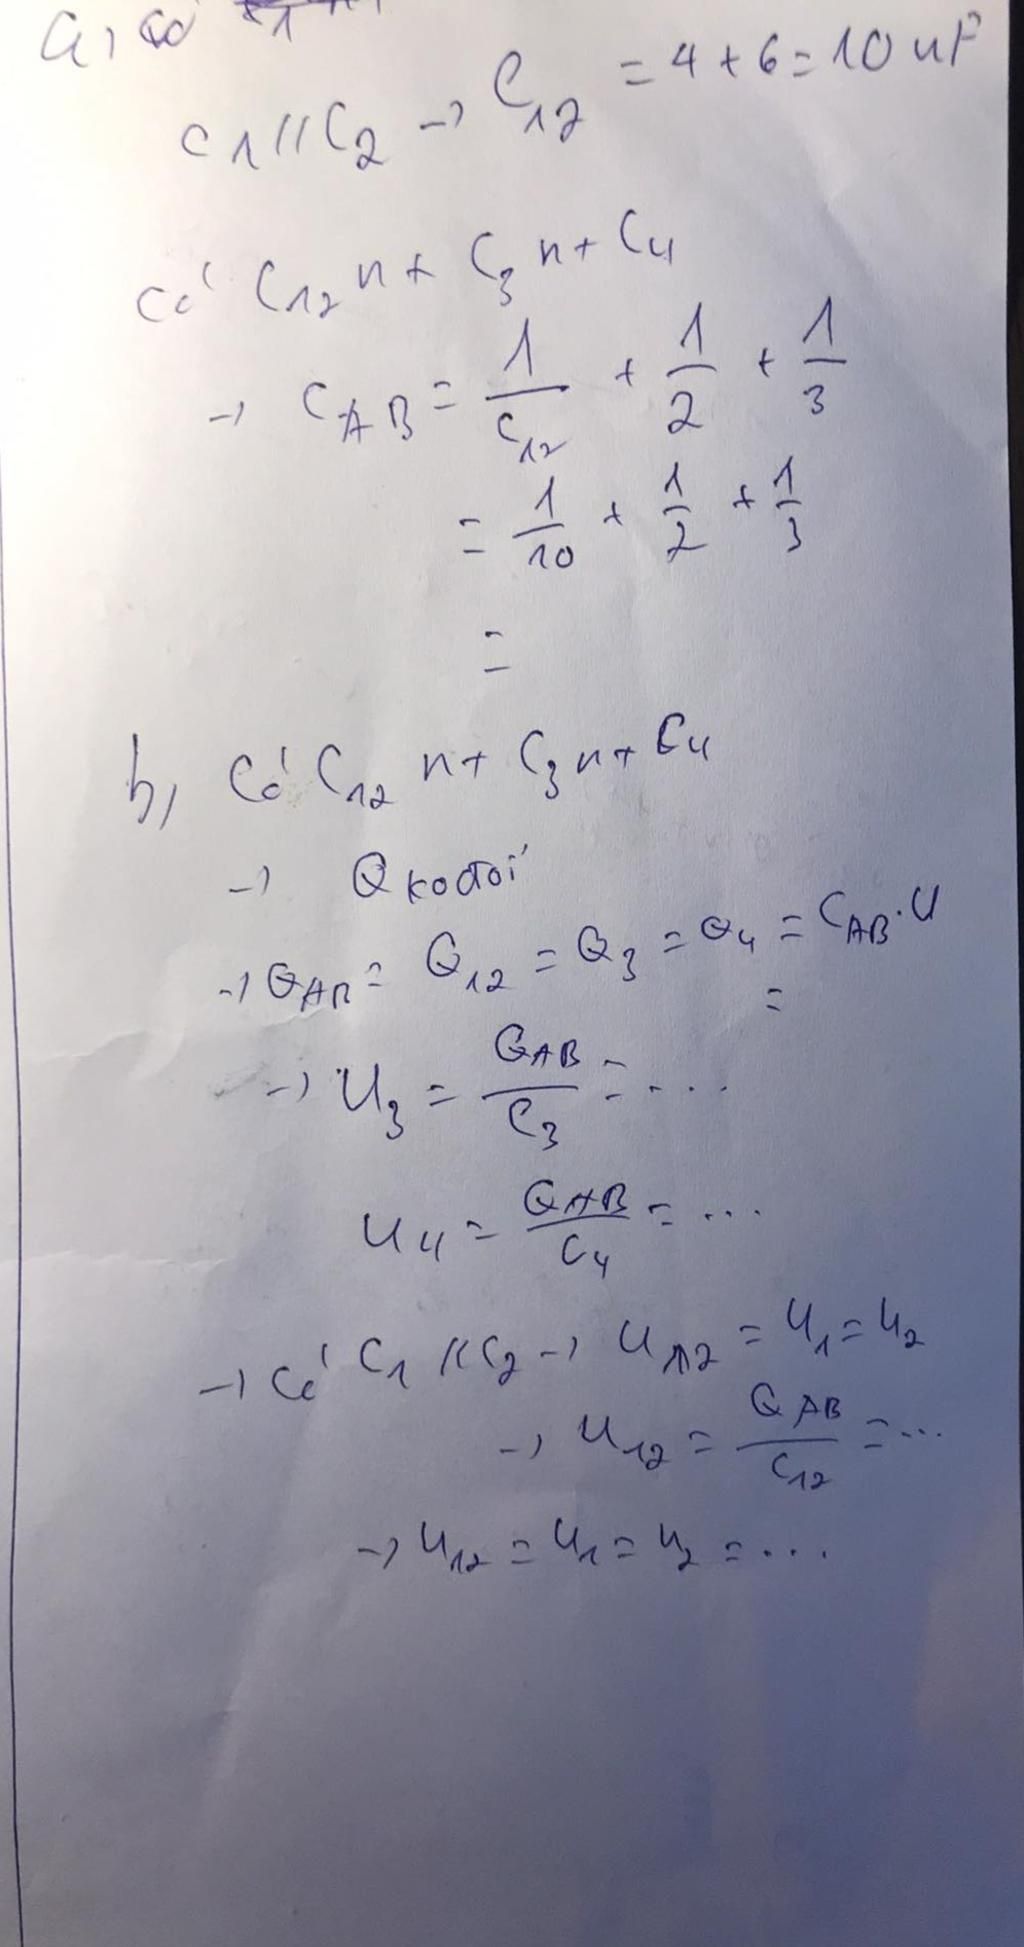 a, Có
C1 // C2 → C12 = 4 + 6 = 10 uF
Có C12 nt C3 nt C4
→ CAB = 1/C12 + 1/2 + 1/3
= 1/10 + 1/2 + 1/3
=
b, Có C12 nt C3 nt C4
→ Q ko đổi
→ QAB = Q12 = Q3 = Q4 = CAB . U
=
→ U3 = QAB/C3 = ...
U4 = QAB/C4 = ...
→ Có C1 // C2 → U12 = U1 = U2
→ U12 = QAB/C12 = ...
→ U12 = U1 = U2 = ...